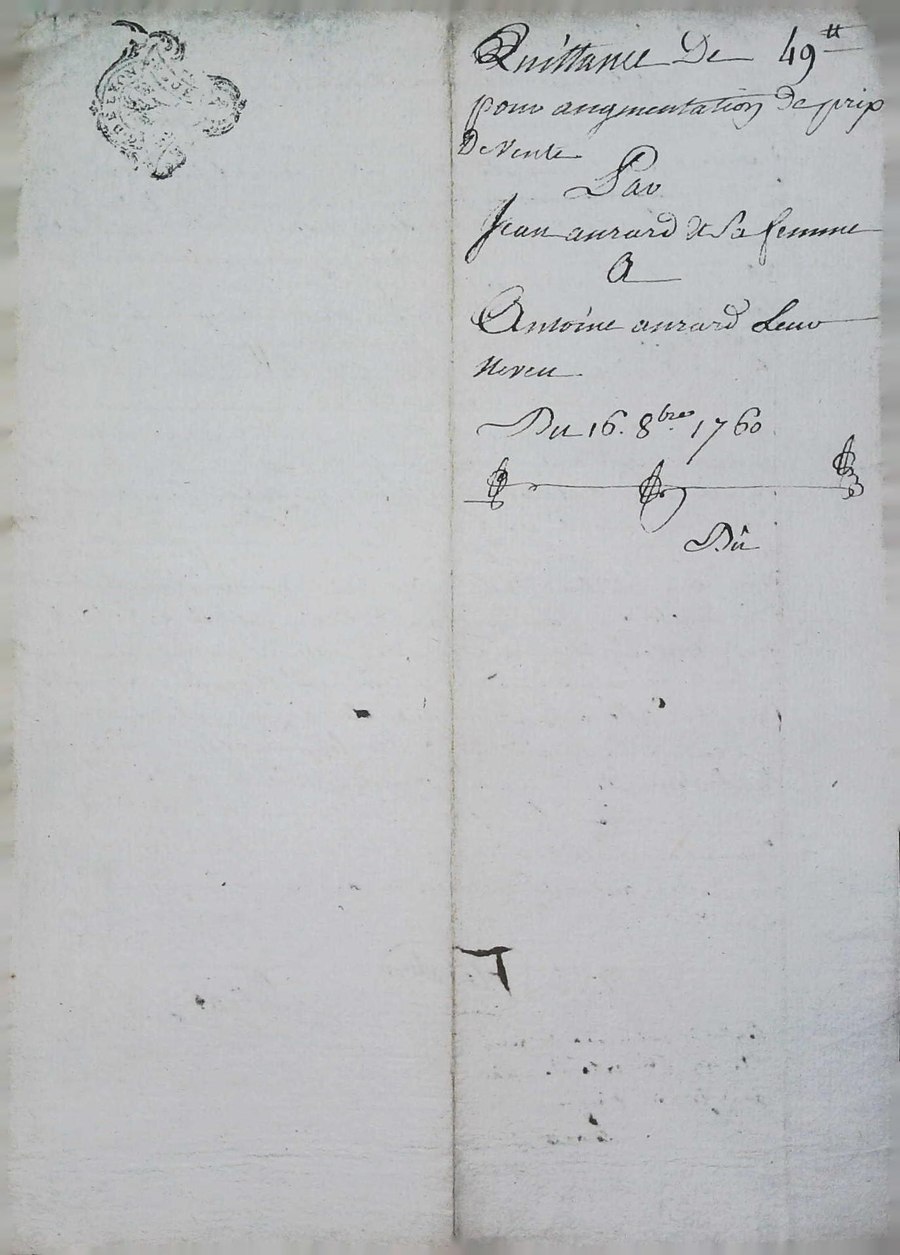 Quittance De 49 ₶
pour augmentation de prix
De vente
Par
Jean aurard & Sa femme
A
Antoine aurard Leur
Neveu
Du 16. 8bre 1760
Du